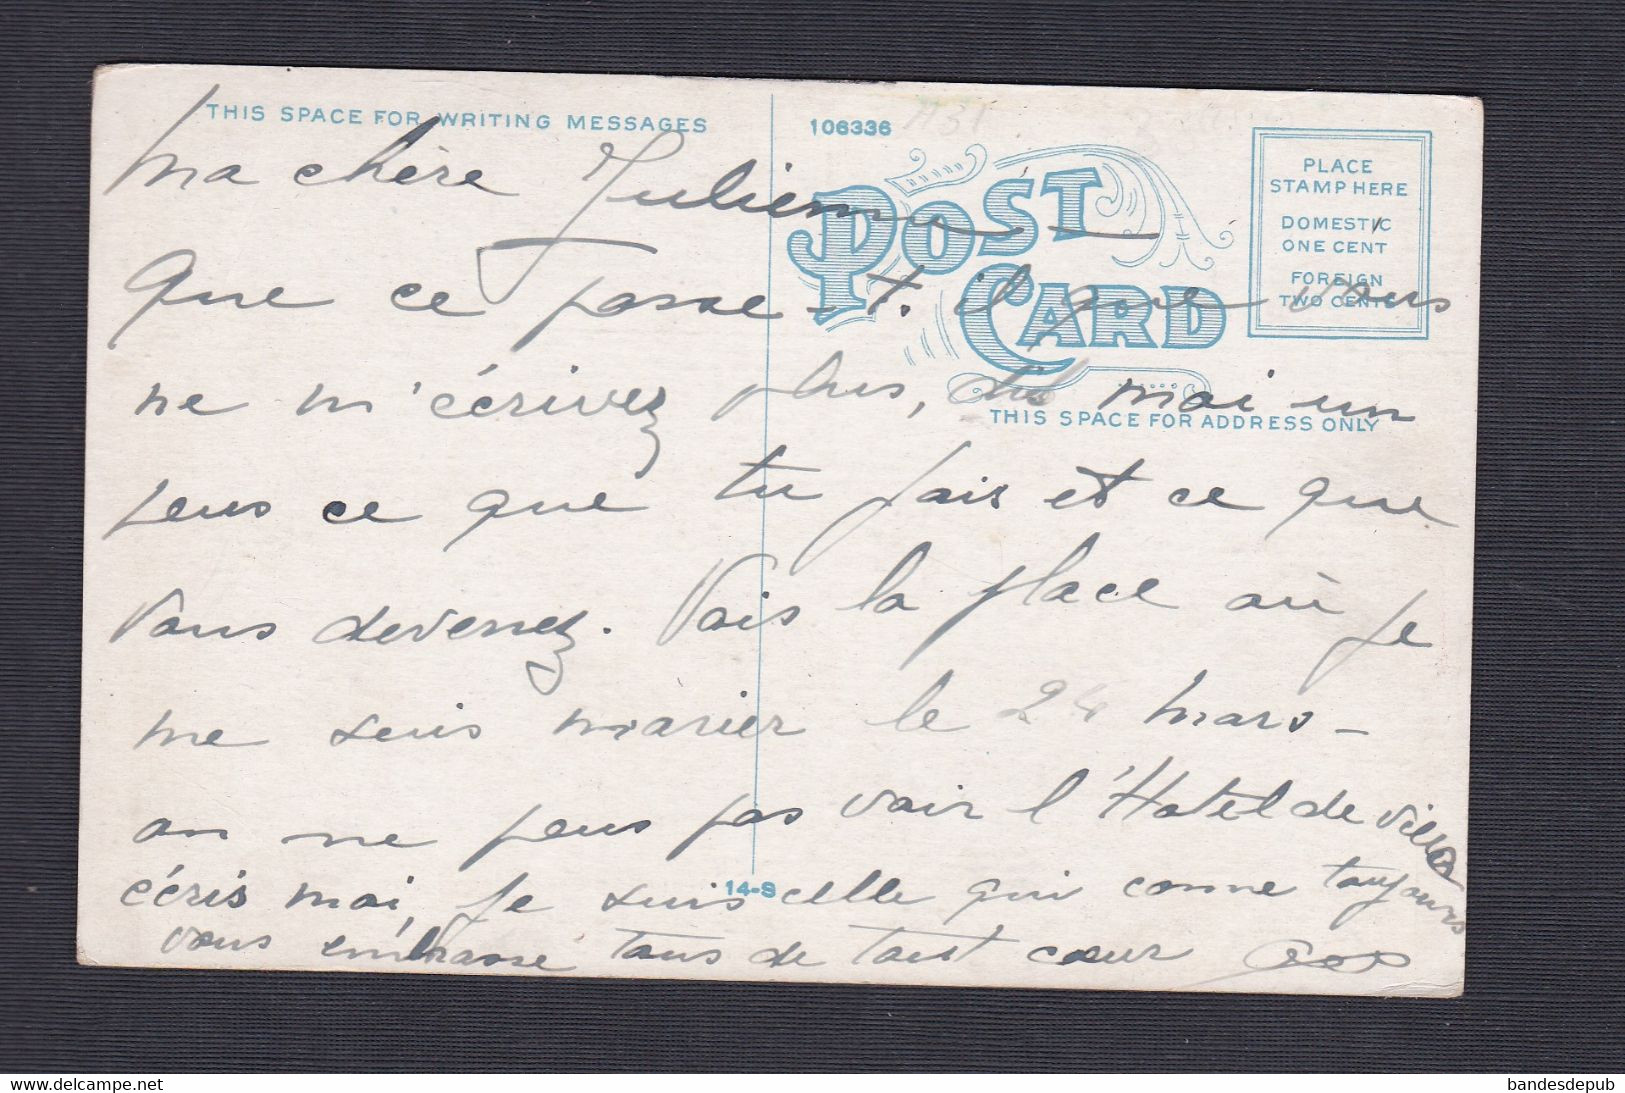 THIS SPACE FOR WRITING MESSAGES
106336
POST CARD
PLACE
STAMP HERE
DOMESTIC
ONE CENT
FOREIGN
TWO CENTS
THIS SPACE FOR ADDRESS ONLY
Ma chère Julienne
Que ce passe-t-il que vous
ne m'écrivez plus, dis moi un
peus ce que tu fais et ce que
vous devenez. Vois la place où je
me suis marier le 24 mars -
on ne peus pas voir l'Hotel de ville
écris moi, je suis celle qui comme toujours
vous embrasse tous de tout cœur
14-S
delcampe.net
bandesdepub